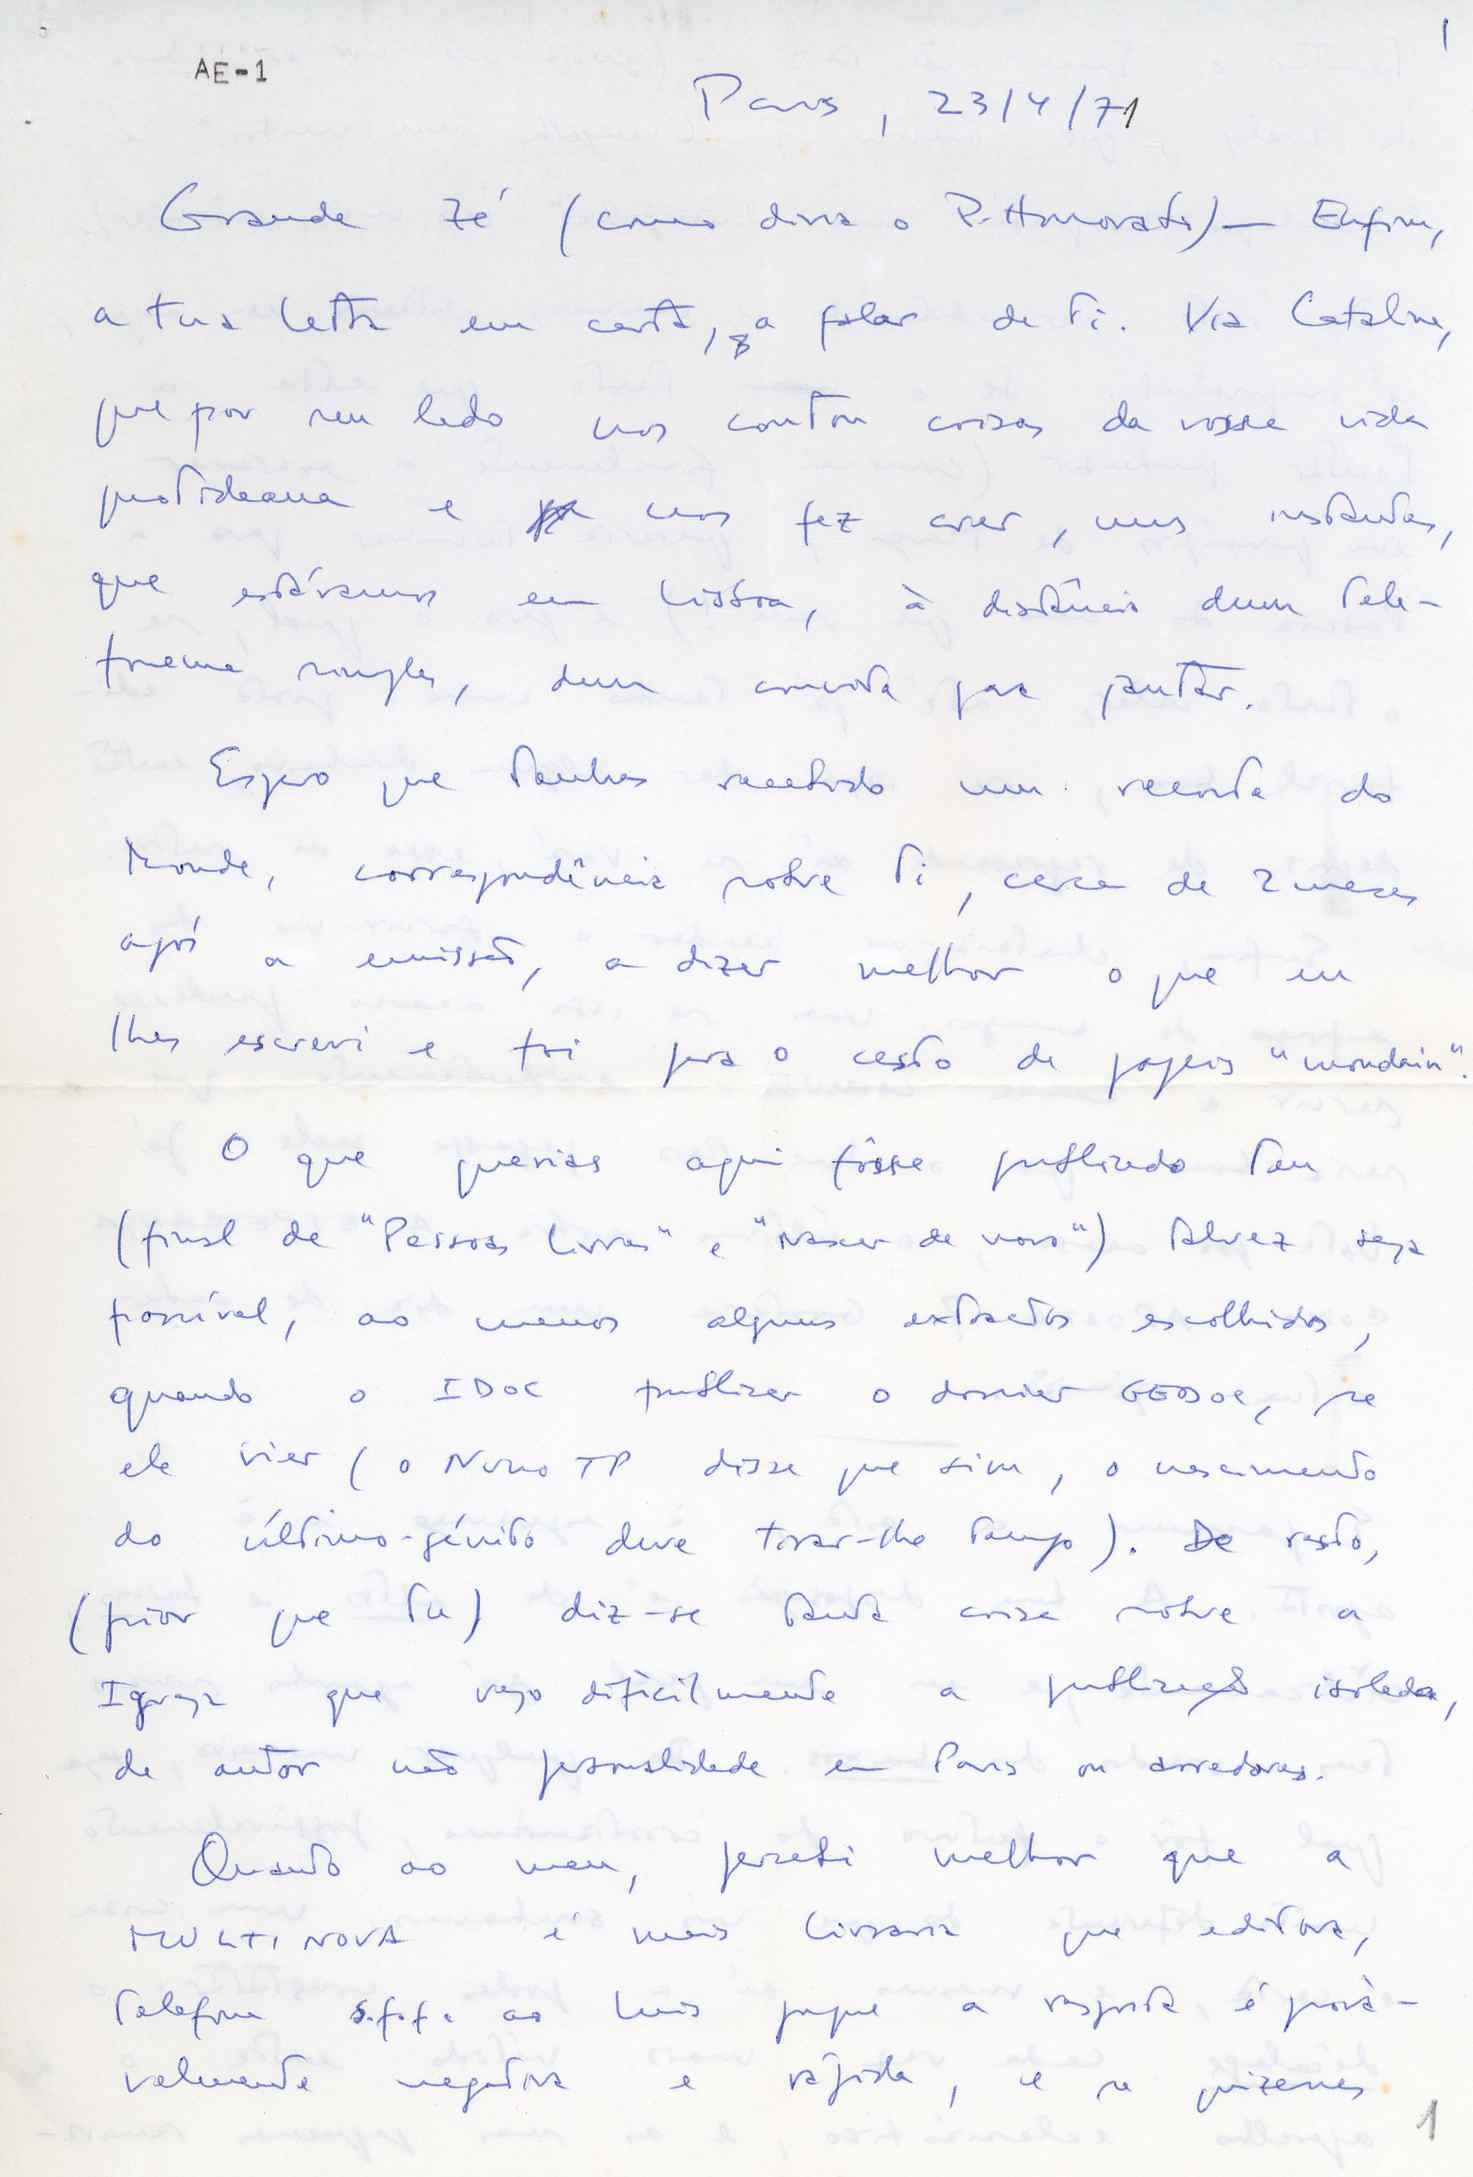 1
AE-1
Paris, 23/4/71
Grande Zé (como diria o P. Honorato) — Enfim,
a tua letra em carta, a falar de ti. Via Catalina,
que por seu lado nos contou coisas da vossa vida
quotideana e nos fez crer, uns instantes,
que estávamos em Lisboa, à distância dum tele-
fonema simples, dum convite para jantar.
Espero que tenhas recebido um recorte do
Monde, correspondência sobre ti, cerca de 2 meses
após a emissão, a dizer melhor o que eu
lhes escrevi e foi para o cesto de papeis "mondain".
O que querias aqui fôsse publicado teu
(final de "Pessoas Livres" e "Nascer de novo") talvez seja
possível, ao menos alguns extractos escolhidos,
quando o IDOC publicar o dossier GEDOC, se
ele vier (o Nuno TP disse que sim, o nascimento
do último-génito deve tirar-lhe tempo). De resto,
(pior que tu) diz-se tanta coisa sobre a
Igreja que vejo dificilmente a publicação isolada,
de autor não personalidade em Paris ou arredores.
Quanto ao meu, percebi melhor que a
MULTINOVA é mais livraria que editora,
telefona s.f.f. ao Luis porque a resposta é prova-
velmente negativa e rápida, e se quizeres
1